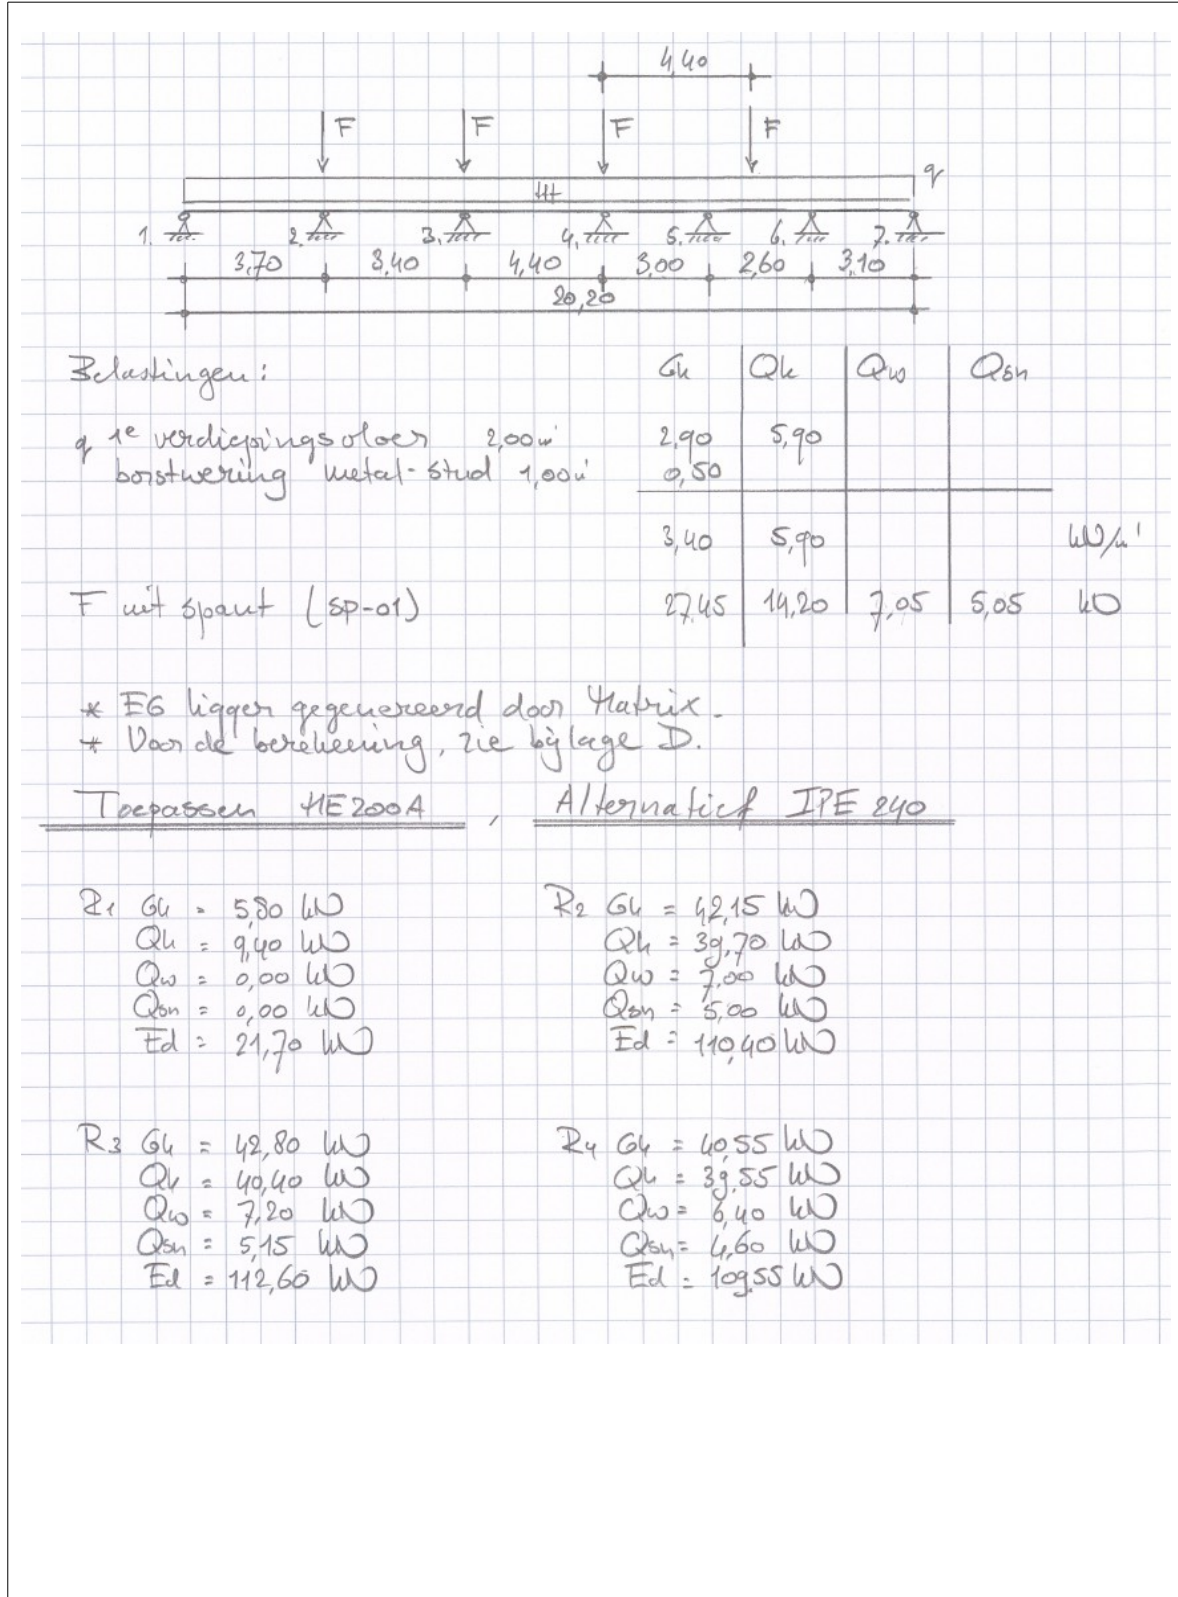 4,40
F F F F
q
1. 2. 3. 4. 5. 6. 7.
3,70 3,40 4,40 3,00 2,60 3,10
20,20
Belastingen: Gk Qk Qw Qsn
q 1e verdiepingsvloer 2,00m' 2,90 5,90
borstwering metal-stud 1,00m' 0,50
3,40 5,90 kN/m'
F uit spant (SP-01) 27,45 14,20 7,05 5,05 kN
* EG ligger gegenereerd door Matrix.
* Voor de berekening, zie bijlage D.
Toepassen HE200A , Alternatief IPE 240
R1 Gk = 5,80 kN
Qk = 9,40 kN
Qw = 0,00 kN
Qsn = 0,00 kN
Ed = 21,70 kN
R2 Gk = 42,15 kN
Qk = 39,70 kN
Qw = 7,00 kN
Qsn = 5,00 kN
Ed = 110,40 kN
R3 Gk = 42,80 kN
Qk = 40,40 kN
Qw = 7,20 kN
Qsn = 5,15 kN
Ed = 112,60 kN
R4 Gk = 40,55 kN
Qk = 39,55 kN
Qw = 6,40 kN
Qsn = 4,60 kN
Ed = 109,55 kN